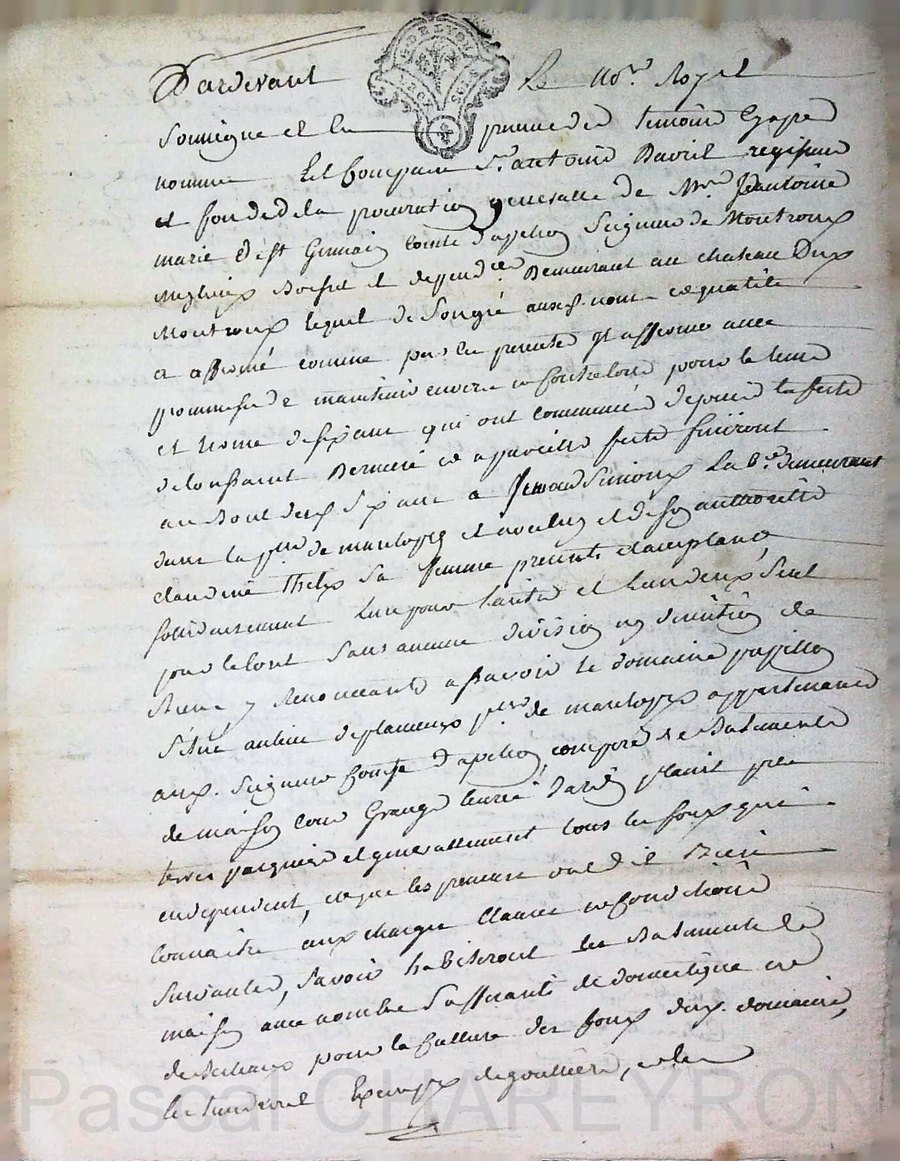 G. DE LYON
Pardevant Le no.re Royal
Soussigné et les presence des temoins Cy apres
nommés Est Comparu S.r antoine Bavril regisseur
et fondé de la procuration generalle de M.re Jean antoine
marie de St Germain comte d'apchon Seigneur de Montroux
et dependces Demeurant au chateau Dud.
Montroux lequel de Son gré auxd. nom et qualité
a affermé comme par les presentes Il afferme avec
promesse de maintenir envers et contre tous pour le tems
et terme de six ans qui ont commencé depuis la feste
de toussaint Derniere et a pareille feste finiront
au Bout desd. Six ans a Simon La b.r demeurant
dans la p.sse de marclopt et avec luy et de Son authorité
claudine Sa femme presents et acceptants
solidairement L'un pour L'autre et L'un d'eux Seul
pour le tout Sans aucune division ny discution de
Biens y Renonceants a Savoir le domaine papillon
Situé au lieu de p.sse de marclopt appartenant
aud. Seigneur Comte d'apchon composé de Batiments
de maison cour Grange Ecurie Jardin prés
terres paquiers et generallement tous les fonds qui
en dependent, et que les preneurs ont dit Bien
connaitre aux charges Clauses et Conditions
Suivantes, Savoir habiteront les Batiments de
maison avec nombre Suffisant de domestique et
de Bestiaux pour la Culture des fonds dud. domaine,
les tiendront Exempt de gouttiere, et les
Pascal CHAREYRON